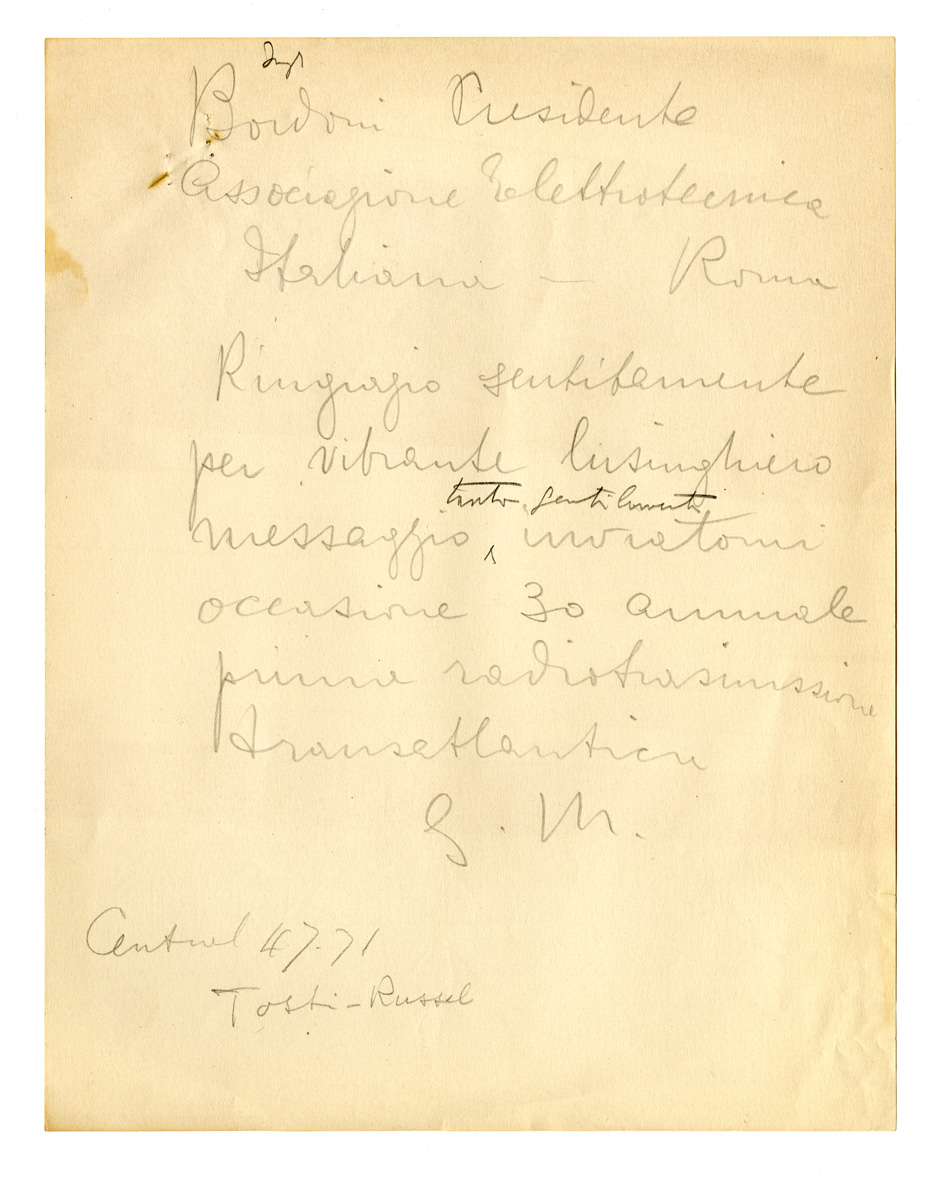 Bordoni Presidente
Associazione Elettrotecnica
Italiana – Roma
Ringrazio sentitamente
per vibrante lusinghiero
tanto gentilmente
messaggio inviatomi
occasione 30 annuale
prima radiotrasmissione
transatlantica
G. M.
Central 47.71
Tosti-Russel